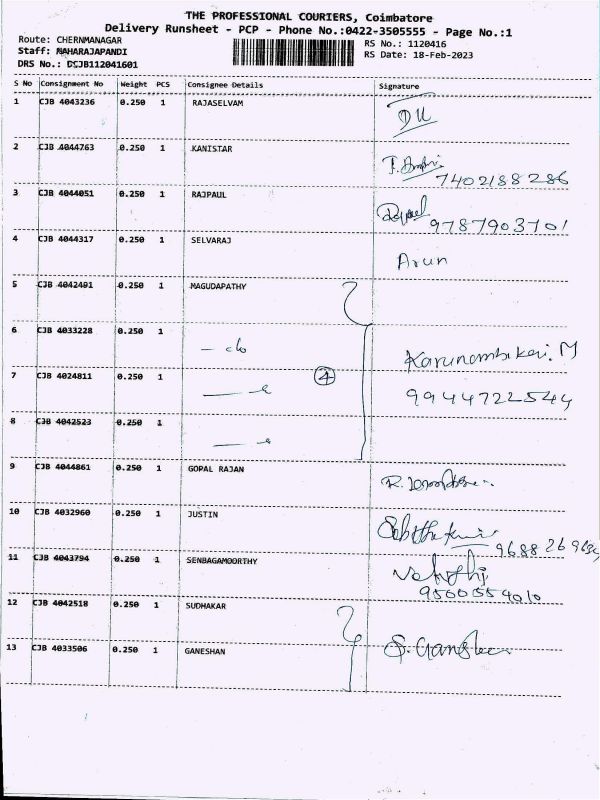 THE PROFESSIONAL COURIERS, Coimbatore
Delivery Runsheet - PCP - Phone No.:0422-3505555 - Page No.:1
Route: CHERNMANAGAR
RS No.: 1120416
Staff: MAHARAJAPANDI
RS Date: 18-Feb-2023
DRS No.: DCJB112041601
S No Consignment No Weight PCS Consignee Details Signature
1 CJB 4043236 0.250 1 RAJASELVAM
2 CJB 4044763 0.250 1 KANISTAR
7402188286
3 CJB 4044051 0.250 1 RAJPAUL
9787903701
4 CJB 4044317 0.250 1 SELVARAJ Arun
5 CJB 4042491 0.250 1 MAGUDAPATHY
6 CJB 4033228 0.250 1 - do Karunambikai. M
7 CJB 4024811 0.250 1 4 9944722544
8 CJB 4042523 0.250 1
9 CJB 4044861 0.250 1 GOPAL RAJAN
10 CJB 4032960 0.250 1 JUSTIN
11 CJB 4043794 0.250 1 SENBAGAMOORTHY
9500554010
12 CJB 4042518 0.250 1 SUDHAKAR
13 CJB 4033506 0.250 1 GANESHAN